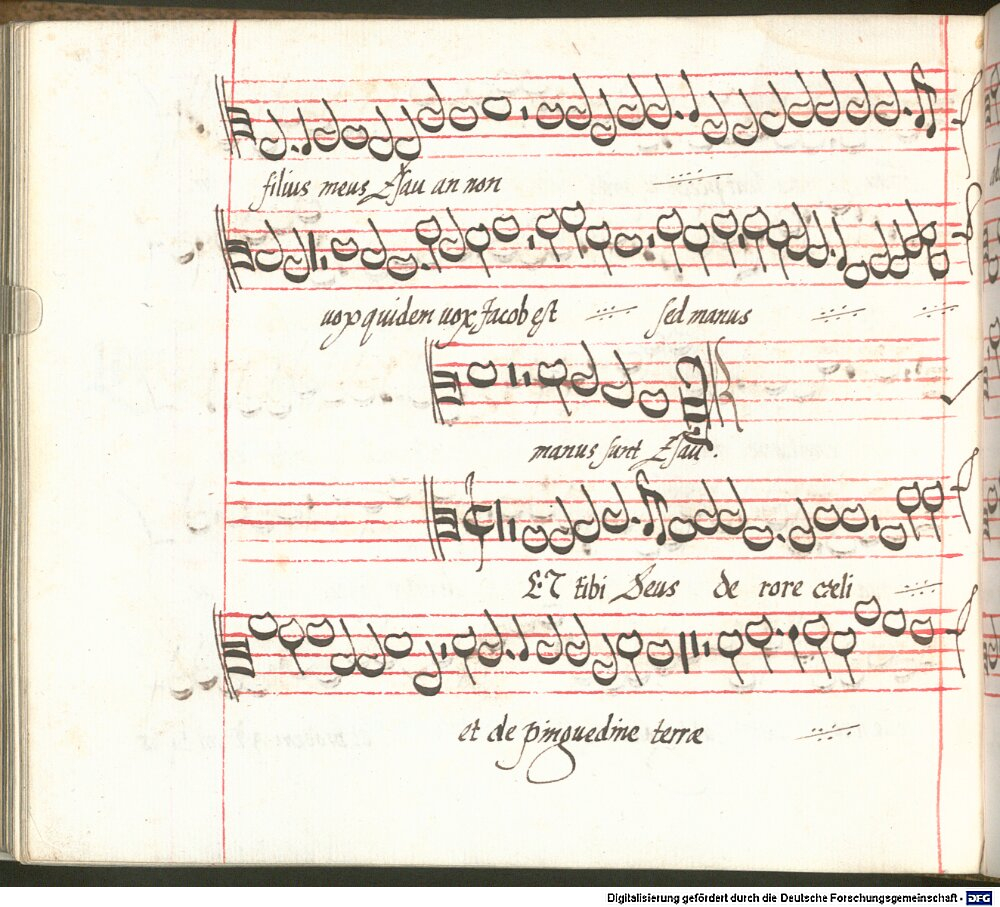 filius meus Esau an non
vox quidem vox Jacob est sed manus
manus sunt Esau.
Et tibi Deus de rore cæli
et de pinguedine terræ
Digitalisierung gefördert durch die Deutsche Forschungsgemeinschaft - DFG